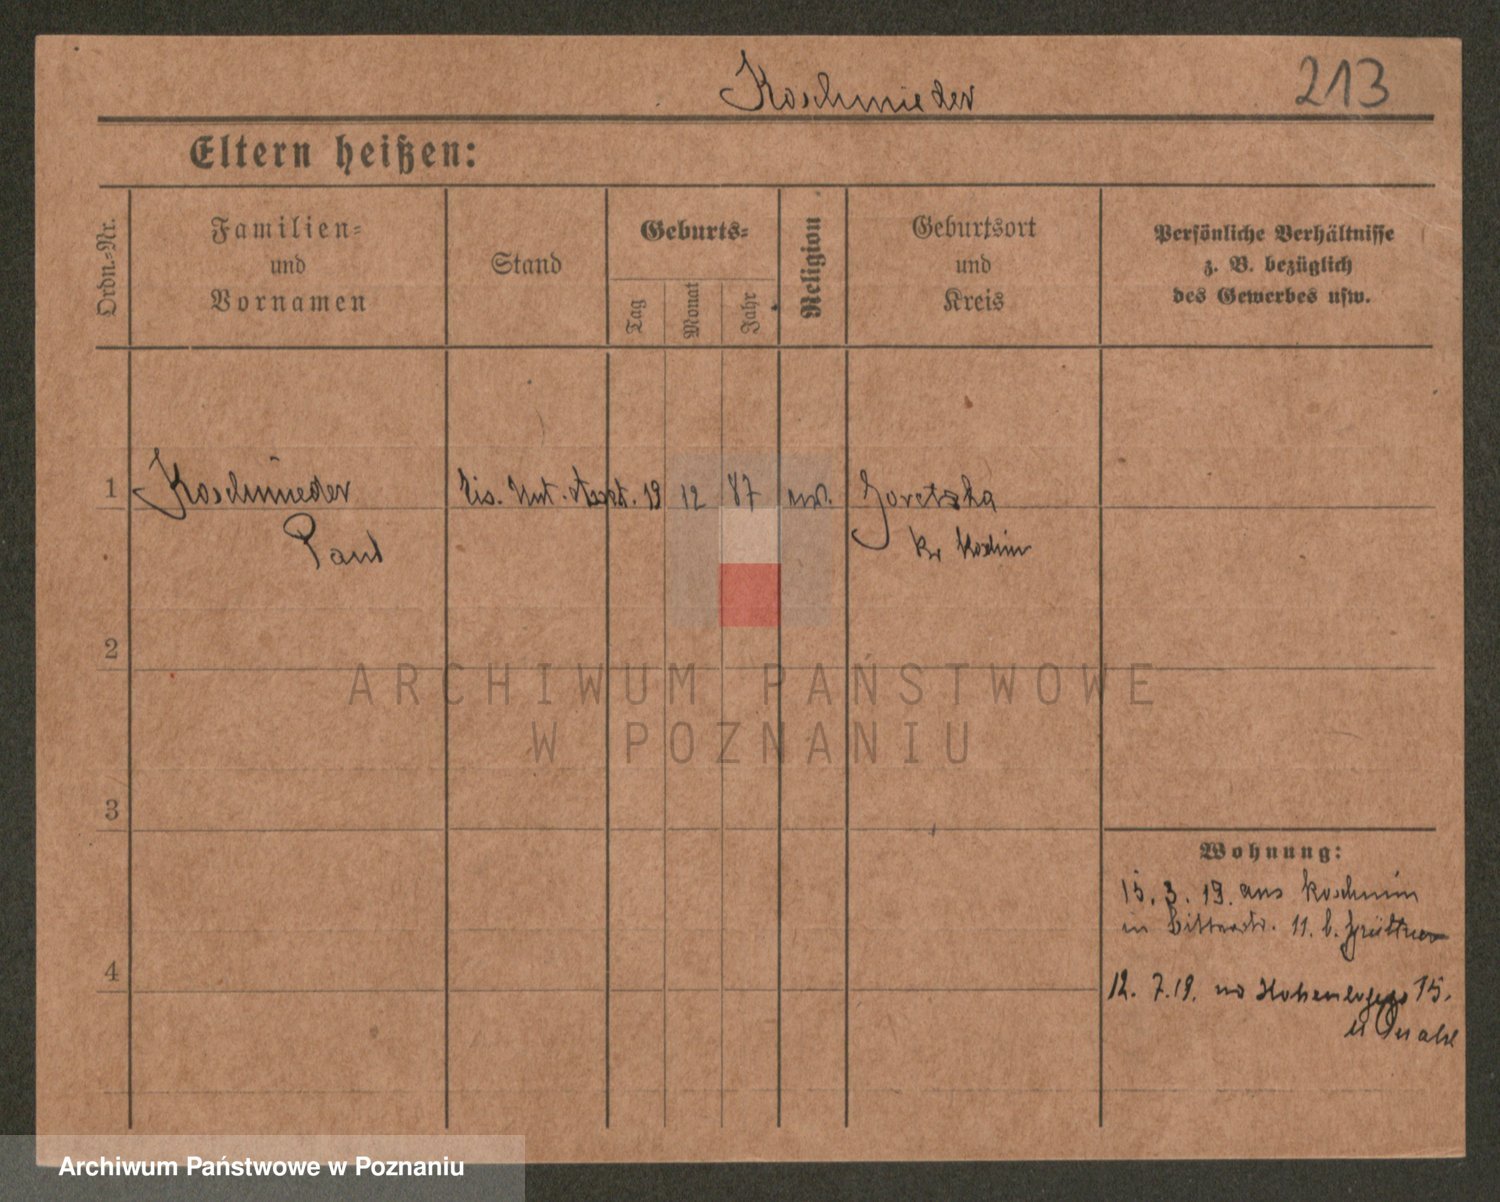 Koschmieder
213
Eltern heißen:
Ordn.-Nr.
Familien-
und
Vornamen
Stand
Geburts-
Tag
Monat
Jahr
Religion
Geburtsort
und
Kreis
Persönliche Verhältnisse
z. B. bezüglich
des Gewerbes usw.
1
Koschmieder
Eis. Unt. Assist. 19 12 87
Paul
Kr Koschmin
2
ARCHIWUM PAŃSTWOWE
W POZNANIU
3
Wohnung:
15. 3. 19. aus Koschmin
in 11. b.
4
12. 7. 19. 15.
Archiwum Państwowe w Poznaniu